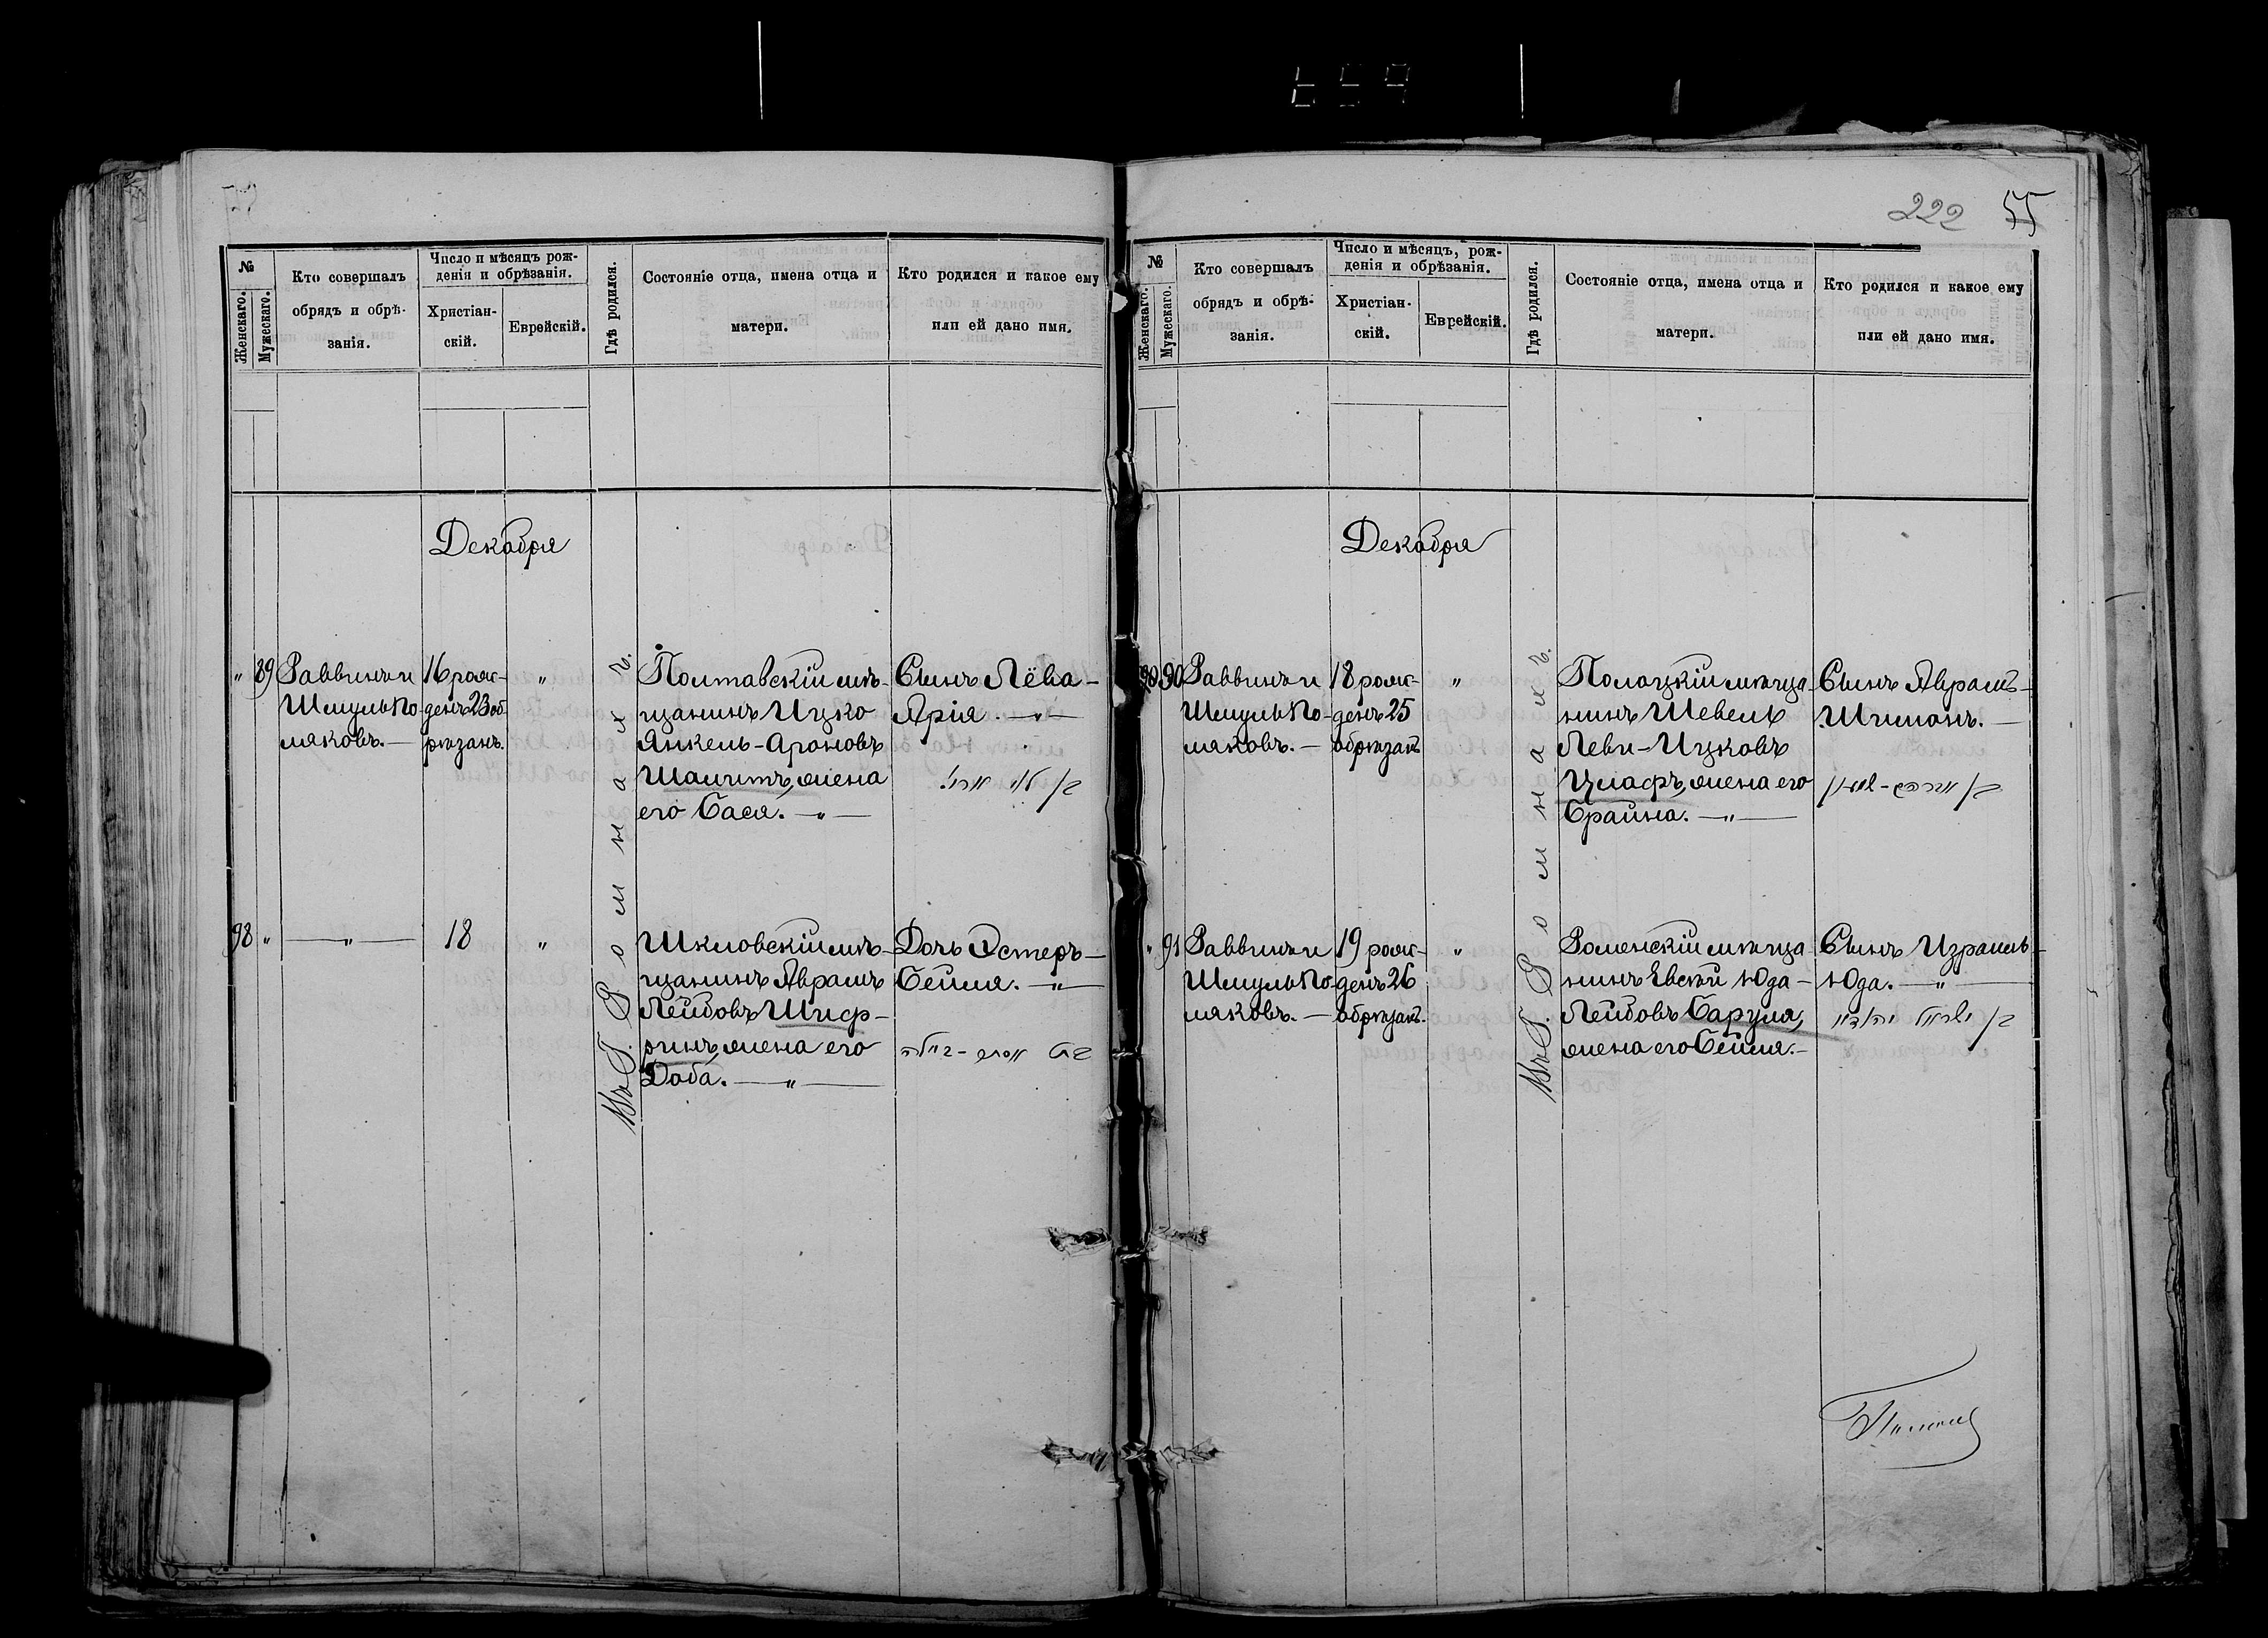 222 55
№
Женскаго.
Мужескаго.
Кто совершалъ
обрядъ и обрѣ-
занія.
Число и мѣсяцъ рож-
денія и обрѣзанія.
Христіан-
скій.
Еврейскій.
Гдѣ родился.
Состояніе отца, имена отца и
матери.
Кто родился и какое ему
или ей дано имя.
Декабря
" 89
Раввинъ и
Шмуль По-
ляковъ. —
16 рож-
денъ 23 об
рѣзанъ.
"
Въ Г. Ромнахъ.
Полтавскій мѣ-
щанинъ Ицко
Янкель-Ароновъ
Шамитъ, жена
его Бася. — " —
Сынъ Лёва-
Арія. — " —
98 "
— " —
18
"
Шкловскій мѣ-
щанинъ Абрамъ
Лейбовъ Шиф-
ринъ, жена его
Доба. — " —
Дочь Эстеръ-
Бейля. — " —
בת אסתר-ביילה
№
Женскаго.
Мужескаго.
Кто совершалъ
обрядъ и обрѣ-
занія.
Число и мѣсяцъ, рож-
денія и обрѣзанія.
Христіан-
скій.
Еврейскій.
Гдѣ родился.
Состояніе отца, имена отца и
матери.
Кто родился и какое ему
или ей дано имя.
Декабря
90
Раввинъ и
Шмуль По-
ляковъ. —
18 рож-
денъ 25
обрѣзанъ
"
Въ Г. Ромнахъ.
Полоцкій мѣща-
нинъ Шевель
Леви-Ицковъ
Цлафъ, жена его
Брайна. — " —
Сынъ Абрамъ-
Шимонъ. —
בן אברהם-שמעון
" 91
Раввинъ и
Шмуль По-
ляковъ. —
19 рож-
денъ 26
обрѣзанъ.
"
Роменскій мѣща-
нинъ Евсѣй Юда-
Лейбовъ Баруля,
жена его Бейля. —
Сынъ Израиль-
Юда. — " —
בן ישראל יהודא